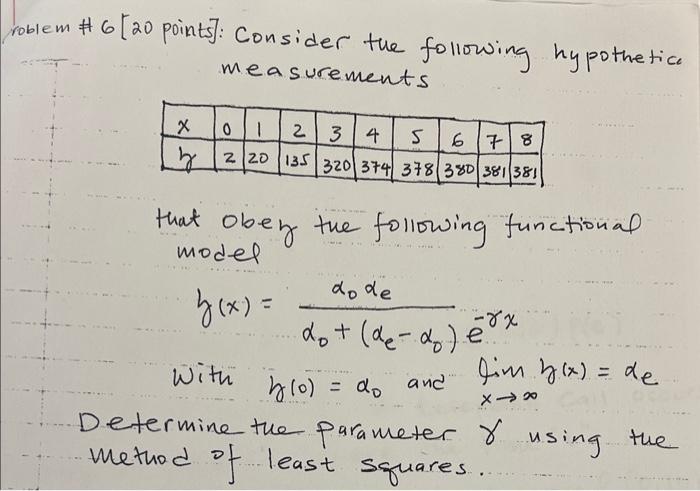 roblem # 6 [20 points]: Consider the following hypothetica
measurements
x 0 1 2 3 4 5 6 7 8
y 2 20 135 320 374 378 380 381 381
that obey the following functional
model
y(x) = α₀ αe / (α₀ + (αe - α₀) e^-γx)
With y(0) = α₀ and lim x→∞ y(x) = αe
Determine the parameter γ using the
method of least squares.